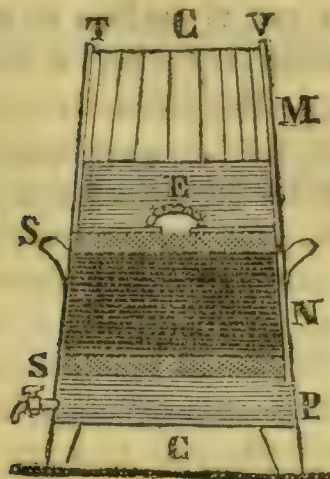 T C V
M
E
S
N
S
P
C